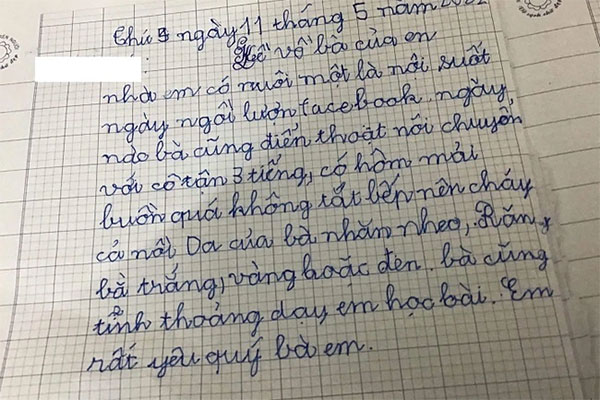 Thứ 5 ngày 11 tháng 5 năm 2022
Kể về bà của em
nhà em có nuôi một là nội suốt
ngày ngồi lướn facebook. ngày
nào bà cũng điển thoại nói chuyển
với cô tận 3 tiếng, có hôm mải
buôn quá không tắt bếp nên cháy
cả nồi. Da của bà nhăn nheo, Răng
bà trắng, vàng hoặc đen. bà cũng
tỉnh thoảng dạy em học bài. Em
rất yêu quý bà em.